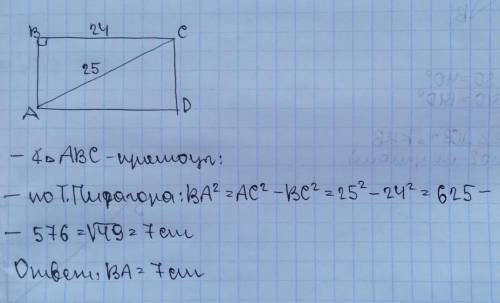 B 24 C
25
A D
- ∢△ABC-прямоуг:
- по Т.Пифагора: BA²=AC²-BC²=25²-24²=625-
- 576=√49=7см
Ответ: BA=7см